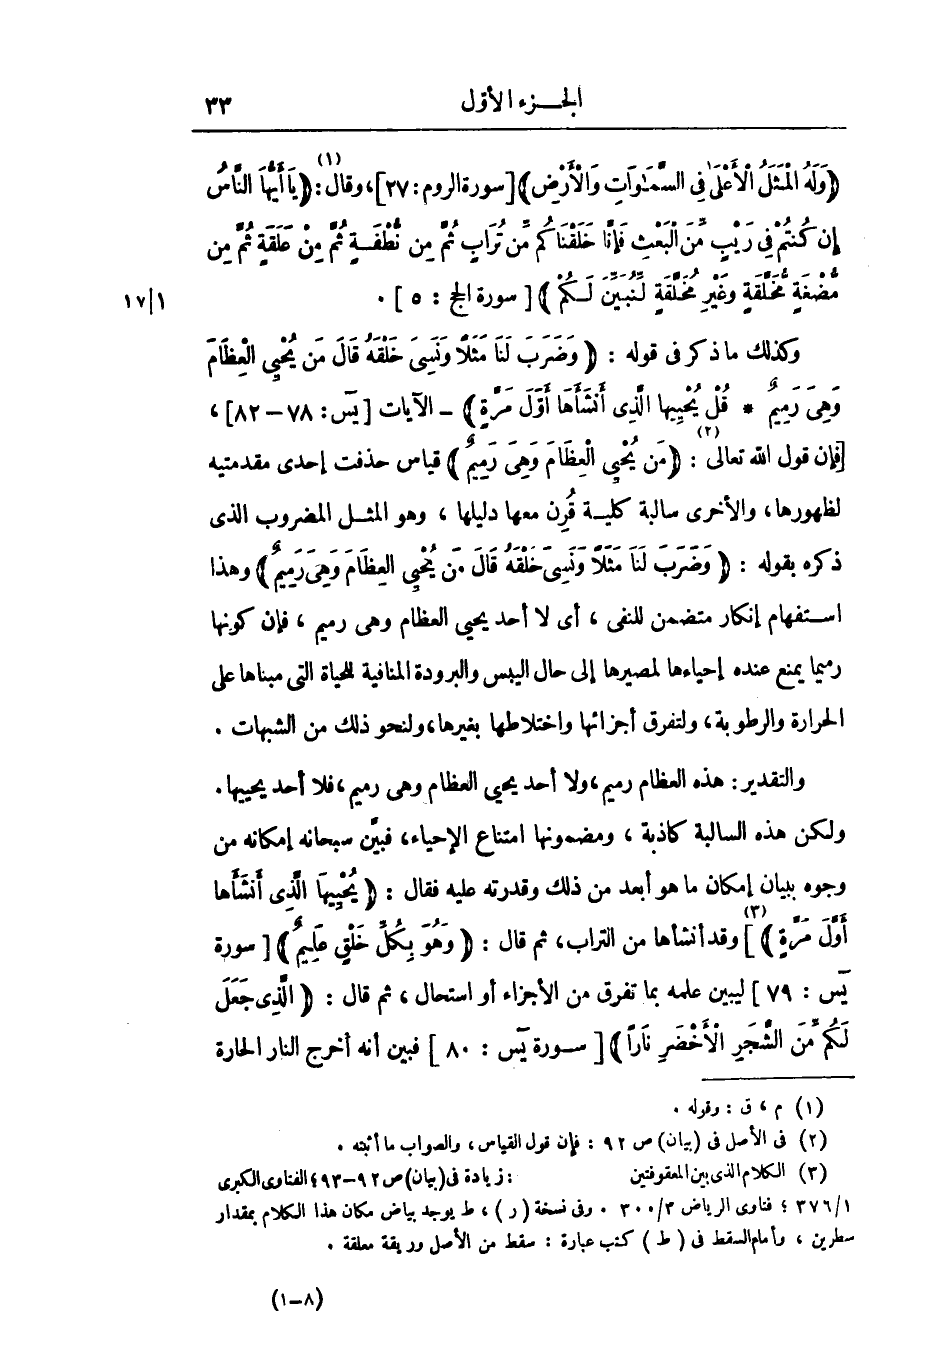 الجزء الأول ٣٣
﴿وَلَهُ الْمَثَلُ الْأَعْلَىٰ فِى السَّمَٰوَاتِ وَالْأَرْضِ﴾ [سورة الروم : ٢٧]، وقال(١) : ﴿يَا أَيُّهَا النَّاسُ
إِن كُنتُمْ فِى رَيْبٍ مِّنَ الْبَعْثِ فَإِنَّا خَلَقْنَاكُم مِّن تُرَابٍ ثُمَّ مِن نُّطْفَةٍ ثُمَّ مِنْ عَلَقَةٍ ثُمَّ مِن
مُّضْغَةٍ مُّخَلَّقَةٍ وَغَيْرِ مُخَلَّقَةٍ لِّنُبَيِّنَ لَكُمْ﴾ [ سورة الحج : ٥ ] .
١/١٧
وكذلك ما ذكر فى قوله : ﴿ وَضَرَبَ لَنَا مَثَلًا وَنَسِىَ خَلْقَهُ قَالَ مَن يُحْيِى الْعِظَامَ
وَهِىَ رَمِيمٌ * قُلْ يُحْيِيهَا الَّذِى أَنشَأَهَا أَوَّلَ مَرَّةٍ﴾ ــ الآيات [يس : ٧٨ – ٨٢] ،
[فإن قول الله تعالى(٢) : ﴿مَن يُحْيِى الْعِظَامَ وَهِىَ رَمِيمٌ﴾ قياس حذفت إحدى مقدمتيه
لظهورها، والأخرى سالبة كلية قُرِن معها دليلها ، وهو المثل المضروب الذى
ذكره بقوله : ﴿ وَضَرَبَ لَنَا مَثَلًا وَنَسِىَ خَلْقَهُ قَالَ مَن يُحْيِى العِظَامَ وَهِىَ رَمِيمٌ ﴾ وهذا
استفهام إنكار متضمن للنفى ، أى لا أحد يحيى العظام وهى رميم ، فإن كونها
رميما يمنع عنده إحياءها لمصيرها إلى حال اليبس والبرودة المنافية للحياة التى مبناها على
الحرارة والرطوبة، ولتفرق أجزائها واختلاطها بغيرها، ولنحو ذلك من الشبهات .
والتقدير : هذه العظام رميم، ولا أحد يحيى العظام وهى رميم، فلا أحد يحييها.
ولكن هذه السالبة كاذبة ، ومضمونها امتناع الإحياء، فبيَّن سبحانه إمكانه من
وجوه ببيان إمكان ما هو أبعد من ذلك وقدرته عليه فقال : ﴿ يُحْيِيهَا الَّذِى أَنشَأَهَا
أَوَّلَ مَرَّةٍ ﴾](٣) وقد أنشأها من التراب، ثم قال : ﴿ وَهُوَ بِكُلِّ خَلْقٍ عَلِيمٌ ﴾ [ سورة
يس : ٧٩ ] ليبين علمه بما تفرق من الأجزاء أو استحال ، ثم قال : ﴿ الَّذِى جَعَلَ
لَكُم مِّنَ الشَّجَرِ الْأَخْضَرِ نَاراً ﴾ [ سورة يس : ٨٠ ] فبين أنه أخرج النار الحارة
(١) م ، ق : وقوله .
(٢) فى الأصل فى (بيان) ص ٩٢ : فإن قول القياس ، والصواب ما أثبته .
(٣) الكلام الذى بين المعقوفتين : زيادة فى (بيان) ص ٩٢–٩٣ ؛ الفتاوى الكبرى
٣٧٦/١ ؛ فتاوى الرياض ٣٠٠/٣ . وفى نسخة ( ر ) ، ط يوجد بياض مكان هذا الكلام بمقدار
سطرين ، وأمام السقط فى ( ط ) كتب عبارة : سقط من الأصل وريقة معلقة .
(٨–١)